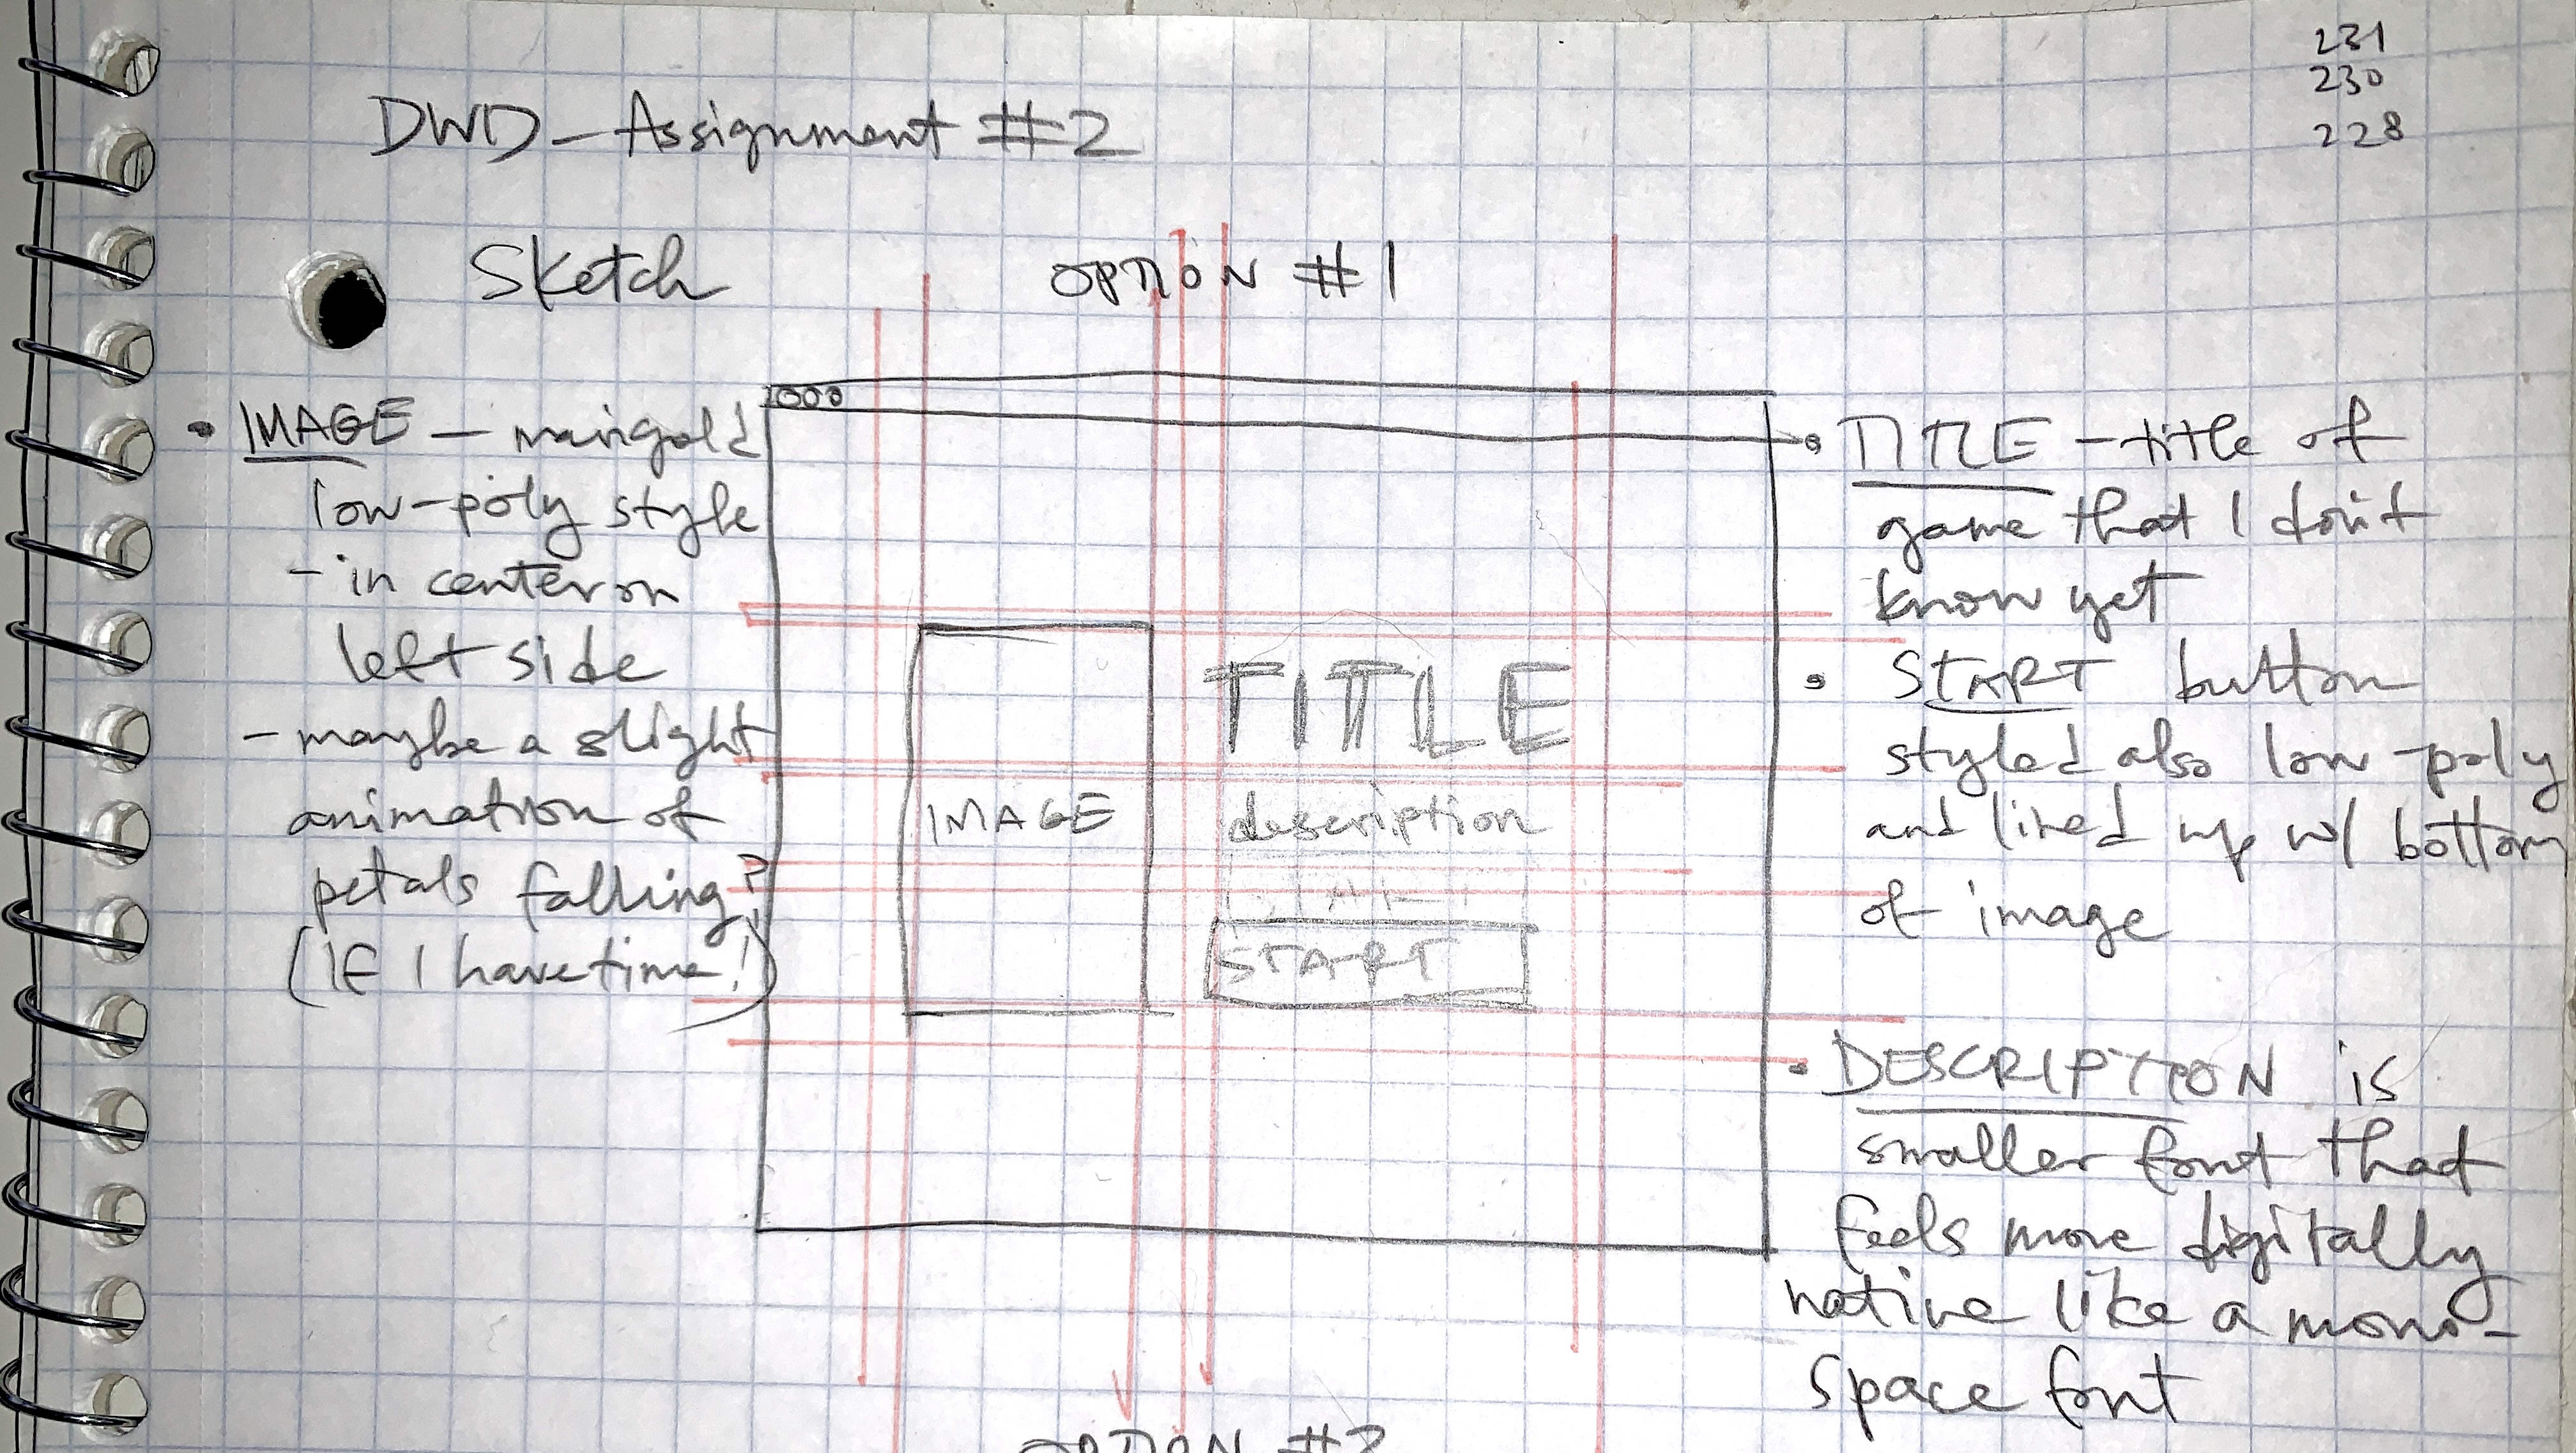 231
230
228
DWD - Assignment #2
Sketch
OPTION #1
• IMAGE - marigold
low-poly style
- in center on
left side
- maybe a slight
animation of
petals falling?
(IF I have time!)
IMAGE
TITLE
description
START
• TITLE - title of
game that I don't
know yet
• START button
styled also low-poly
and lined up w/ bottom
of image
• DESCRIPTION is
smaller font that
feels more digitally
native like a mono-
space font
OPTION #2